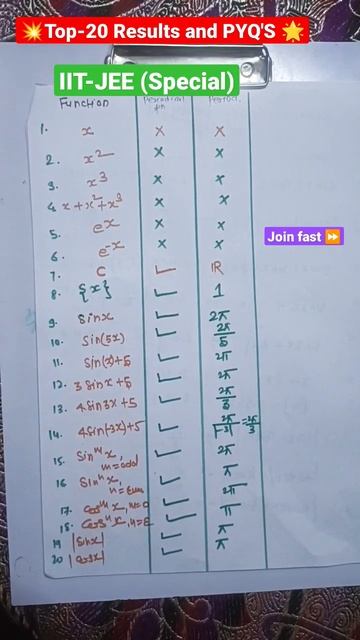 💥Top-20 Results and PYQ'S 🌟
IIT-JEE (Special)
Function Periodical fn Period
1. x × ×
2. x² × ×
3. x³ × ×
4. x+x²+x³ × ×
5. eˣ × ×
Join fast ⏩
6. e⁻ˣ × ×
7. C ✓ IR
8. {x} ✓ 1
9. Sinx ✓ 2π
10. Sin(5x) ✓ 2π/5
11. Sin(x)+5 ✓ 2π
12. 3 Sinx +5 ✓ 2π
13. 4Sin3x+5 ✓ 2π/3
14. 4Sin(-3x)+5 ✓ 2π/|-3| = 2π/3
15. Sinⁿx, n=odd ✓ 2π
16 Sinⁿx, n=Even ✓ π
17. Cosⁿx, n=O ✓ 2π
18. Cosⁿx, n=E ✓ π
19 |Sinx| ✓ π
20 |Cosx| ✓ π